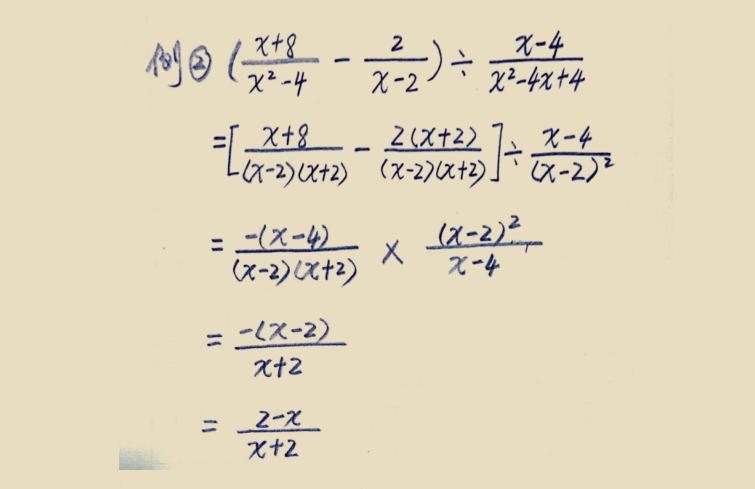 例② (x+8/x²-4 - 2/x-2) ÷ x-4/x²-4x+4
=[x+8/(x-2)(x+2) - 2(x+2)/(x-2)(x+2)] ÷ x-4/(x-2)²
= -(x-4)/(x-2)(x+2) × (x-2)²/x-4
= -(x-2)/x+2
= 2-x/x+2